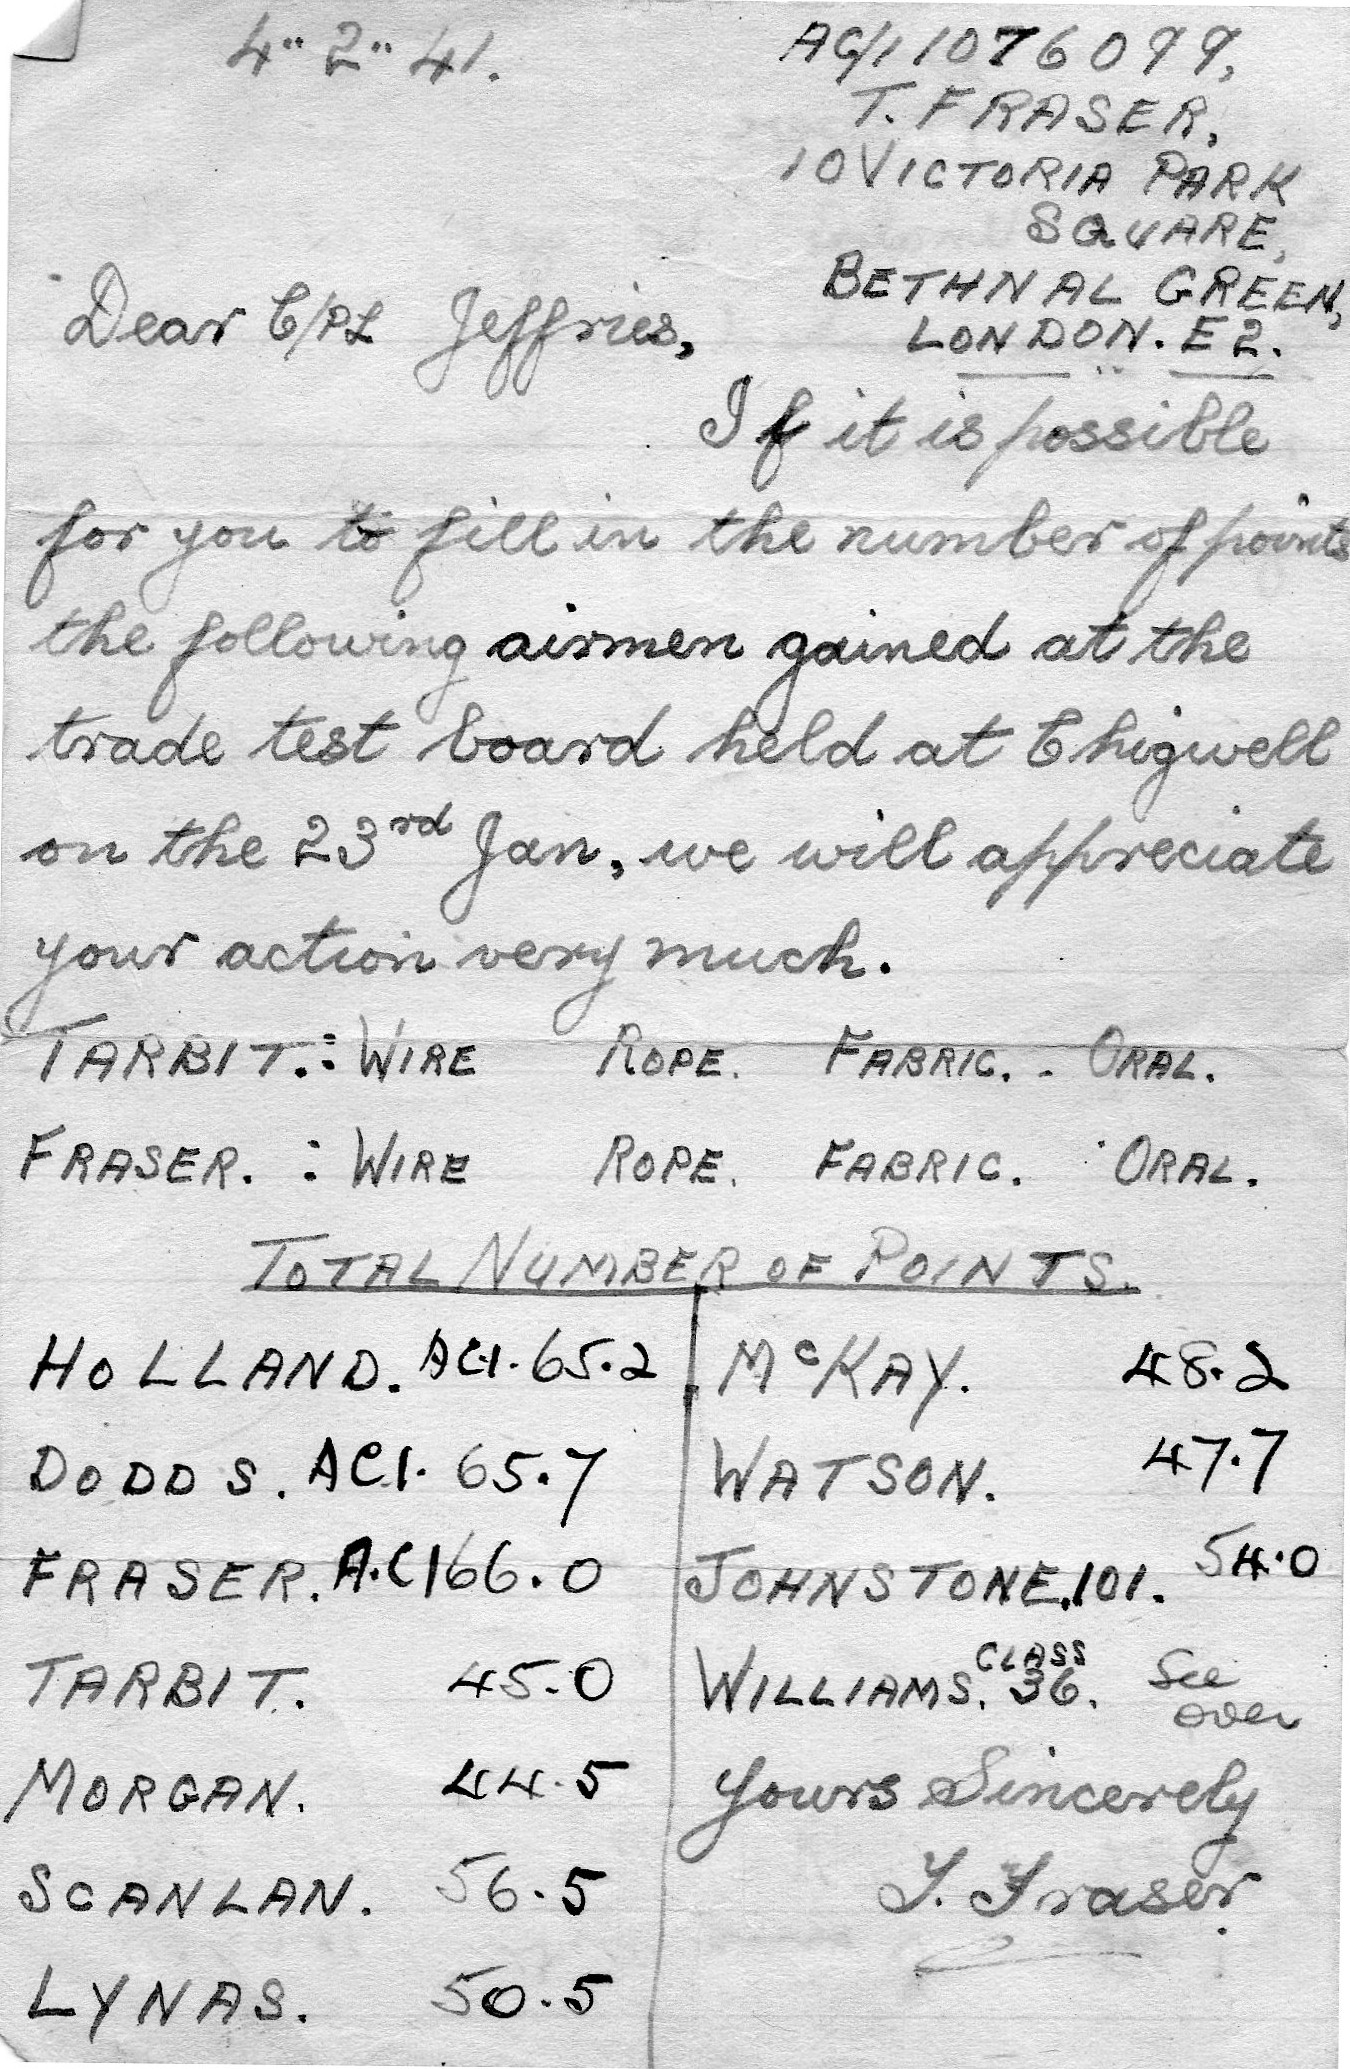 4" 2" 41.
AC/1 1076099,
T. FRASER,
10 VICTORIA PARK
SQUARE,
BETHNAL GREEN,
LONDON. E2.
Dear C/PL Jeffries,
If it is possible
for you to fill in the number of points
the following airmen gained at the
trade test board held at Chigwell
on the 23rd Jan, we will appreciate
your action very much.
TARBIT.: WIRE ROPE. FABRIC. - ORAL.
FRASER. : WIRE ROPE. FABRIC. ORAL.
TOTAL NUMBER OF POINTS.
HOLLAND. AC.1. 65.2
DODDS. AC1. 65.7
FRASER. A.C1 66.0
TARBIT. 45.0
MORGAN. 44.5
SCANLAN. 56.5
LYNAS. 50.5
McKAY. 48.2
WATSON. 47.7
JOHNSTONE, 101. 54.0
WILLIAMS. CLASS 36. See over
Yours Sincerely
T. Fraser.